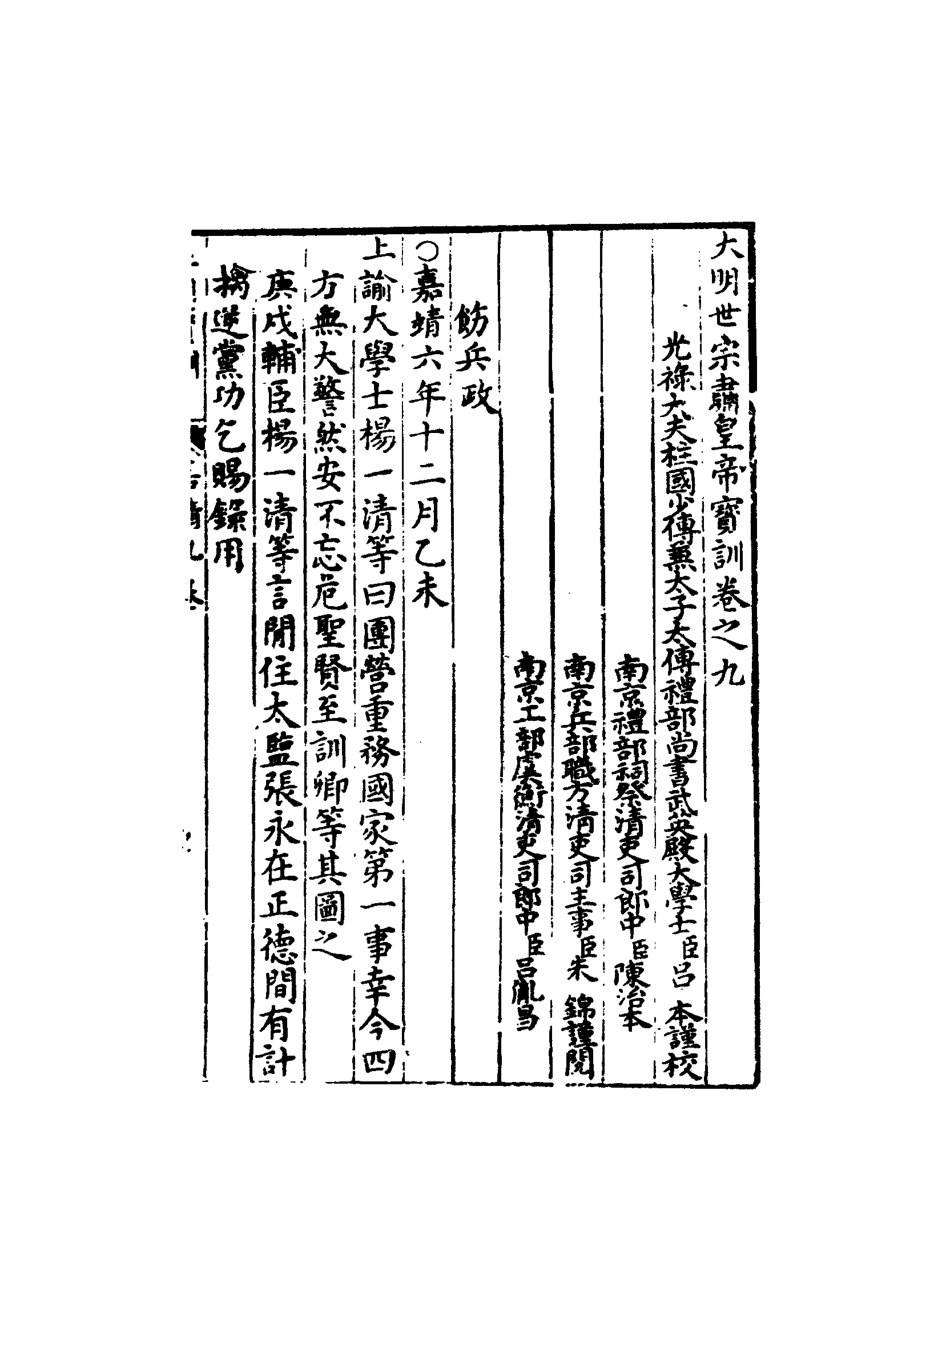 大明世宗肅皇帝寶訓卷之九
光祿大夫柱國少傅兼太子太傅禮部尚書武英殿大學士臣呂 本謹校
南京禮部祠祭清吏司郎中臣陳治本
南京兵部職方清吏司主事臣朱 錦謹閱
南京工部虞衡清吏司郎中臣呂胤昌
飭兵政
○嘉靖六年十二月乙未
上諭大學士楊一清等曰團營重務國家第一事幸今四
方無大警然安不忘危聖賢至訓卿等其圖之
庚戌輔臣楊一清等言閒住太監張永在正德間有計
擒逆黨功乞賜錄用